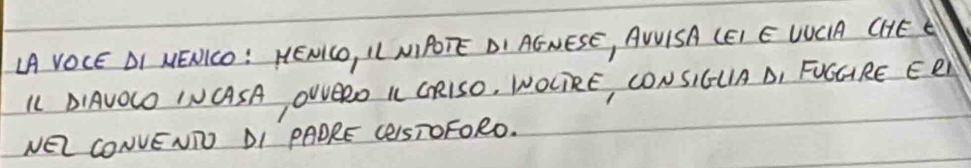 LA VOCE DI MENICO: MENICO, IL NIPOTE DI AGNESE, AVVISA LEI E LUCIA CHE È
IL DIAVOLO IN CASA, OVVERO IL GRISO. INOLTRE, CONSIGLIA DI FUGGIRE E RI
NEL CONVENTO DI PADRE CRISTOFORO.